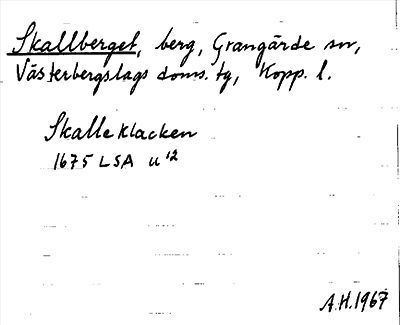 Skallberget, berg, Grangärde sn,
Västerbergslags doms. tg, Kopp. l.
Skalleklacken
1675 LSA u12
A.H. 1967